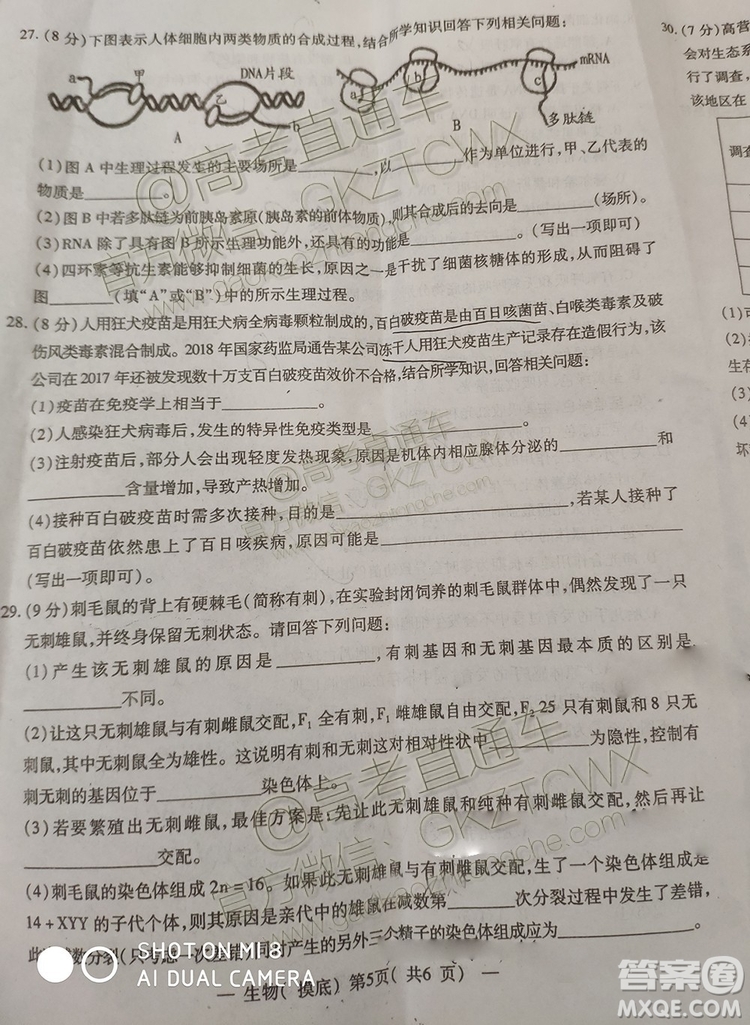 27.(8 分)下图表示人体细胞内两类物质的合成过程,结合所学知识回答下列相关问题:
a 甲 DNA片段
乙 b
A
mRNA
a b c
B 多肽链
(1)图 A 中生理过程发生的主要场所是__________,以__________作为单位进行,甲、乙代表的
物质是__________。
(2)图 B 中若多肽链为前胰岛素原(胰岛素的前体物质),则其合成后的去向是__________(场所)。
(3)RNA 除了具有图 B 所示生理功能外,还具有的功能有__________。(写出一项即可)
(4)四环素等抗生素能够抑制细菌的生长,原因之一是干扰了细菌核糖体的形成,从而阻止了
图__________(填“A”或“B”)中的所示生理过程。
28.(8 分)人用狂犬疫苗是用狂犬病全病毒颗粒制成的,百白破疫苗是由百日咳菌苗、白喉类毒素及破
伤风类毒素混合制成。2018 年国家药监局通告某公司冻干人用狂犬疫苗生产记录存在造假行为,该
公司在 2017 年还被发现数十万支百白破疫苗效价不合格,结合所学知识,回答相关问题:
(1)疫苗在免疫学上相当于__________。
(2)人感染狂犬病毒后,发生的特异性免疫类型是__________。
(3)注射疫苗后,部分人会出现轻度发热现象,原因是机体内相应腺体分泌的__________和
__________含量增加,导致产热增加。
(4)接种百白破疫苗时需多次接种,目的是__________,若某人接种了
百白破疫苗依然患上了百日咳疾病,原因可能是__________。
(写出一项即可)。
29.(9 分)刺毛鼠的背上有硬棘毛(简称有刺),在实验封闭饲养的刺毛鼠群体中,偶然发现了一只
无刺雄鼠,并终身保留无刺状态。请回答下列问题:
(1)产生该无刺雄鼠的原因是__________,有刺基因和无刺基因最本质的区别是
__________不同。
(2)让这只无刺雄鼠与有刺雌鼠交配,F₁ 全有刺,F₁ 雌雄鼠自由交配,F₂ 25 只有刺鼠和 8 只无
刺鼠,其中无刺鼠全为雄性。这说明有刺和无刺这对相对性状中__________为隐性,控制有
刺无刺的基因位于__________染色体上。
(3)若要繁殖出无刺雌鼠,最佳方案是:先让此无刺雄鼠和纯种有刺雌鼠交配,再让__________
__________交配。
(4)刺毛鼠的染色体组成 2n=16。如果此无刺雄鼠与有刺雌鼠交配,生了一个染色体组成是
14+XYY 的子代个体,则其原因是亲代中的雄鼠在减数第__________次分裂过程中发生了差错,
此减数分裂(只考虑一次差错)同时产生的另外三个精子的染色体组成应为__________。
— 生物( 摸底) 第5页( 共6 页) —
30.(7 分)高营
会对生态系
行了调查,
该地区在
调查
(1)可
生存
(2)
坏
@高考直通车
官方微信:GKZTCWX
@高考直通车
官方微信:GKZTCWX
@高考直通车
官方微信:GKZTCWX
SHOT ON MI 8
AI DUAL CAMERA
答案圈
MXQE.COM